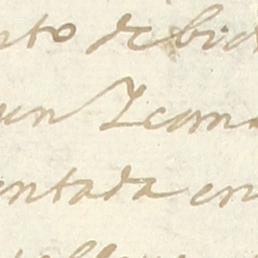 nto debid
un Zcom
entada en